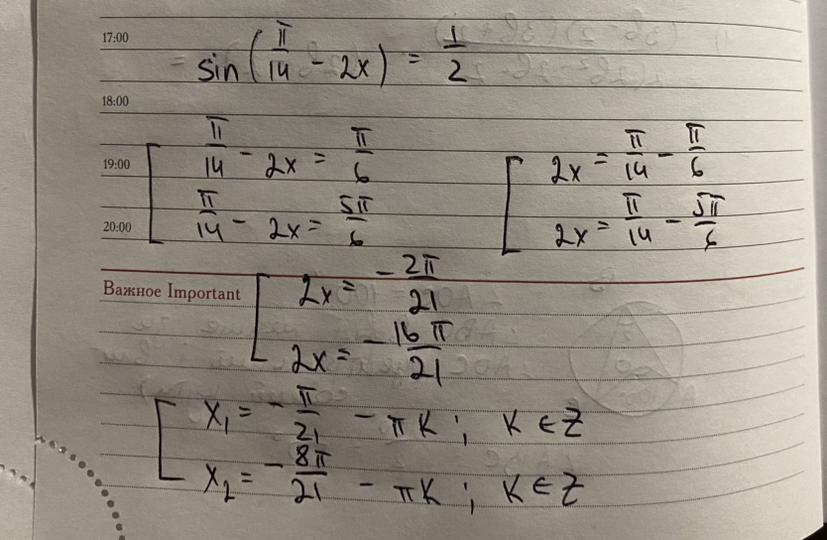 17:00
= sin(π/14 - 2x) = 1/2
18:00
19:00
[ π/14 - 2x = π/6
π/14 - 2x = 5π/6
20:00
[ 2x = π/14 - π/6
2x = π/14 - 5π/6
Важное Important
[ 2x = -2π/21
2x = -16π/21
[ x₁ = -π/21 - πk; k ∈ Z
x₂ = -8π/21 - πk; k ∈ Z